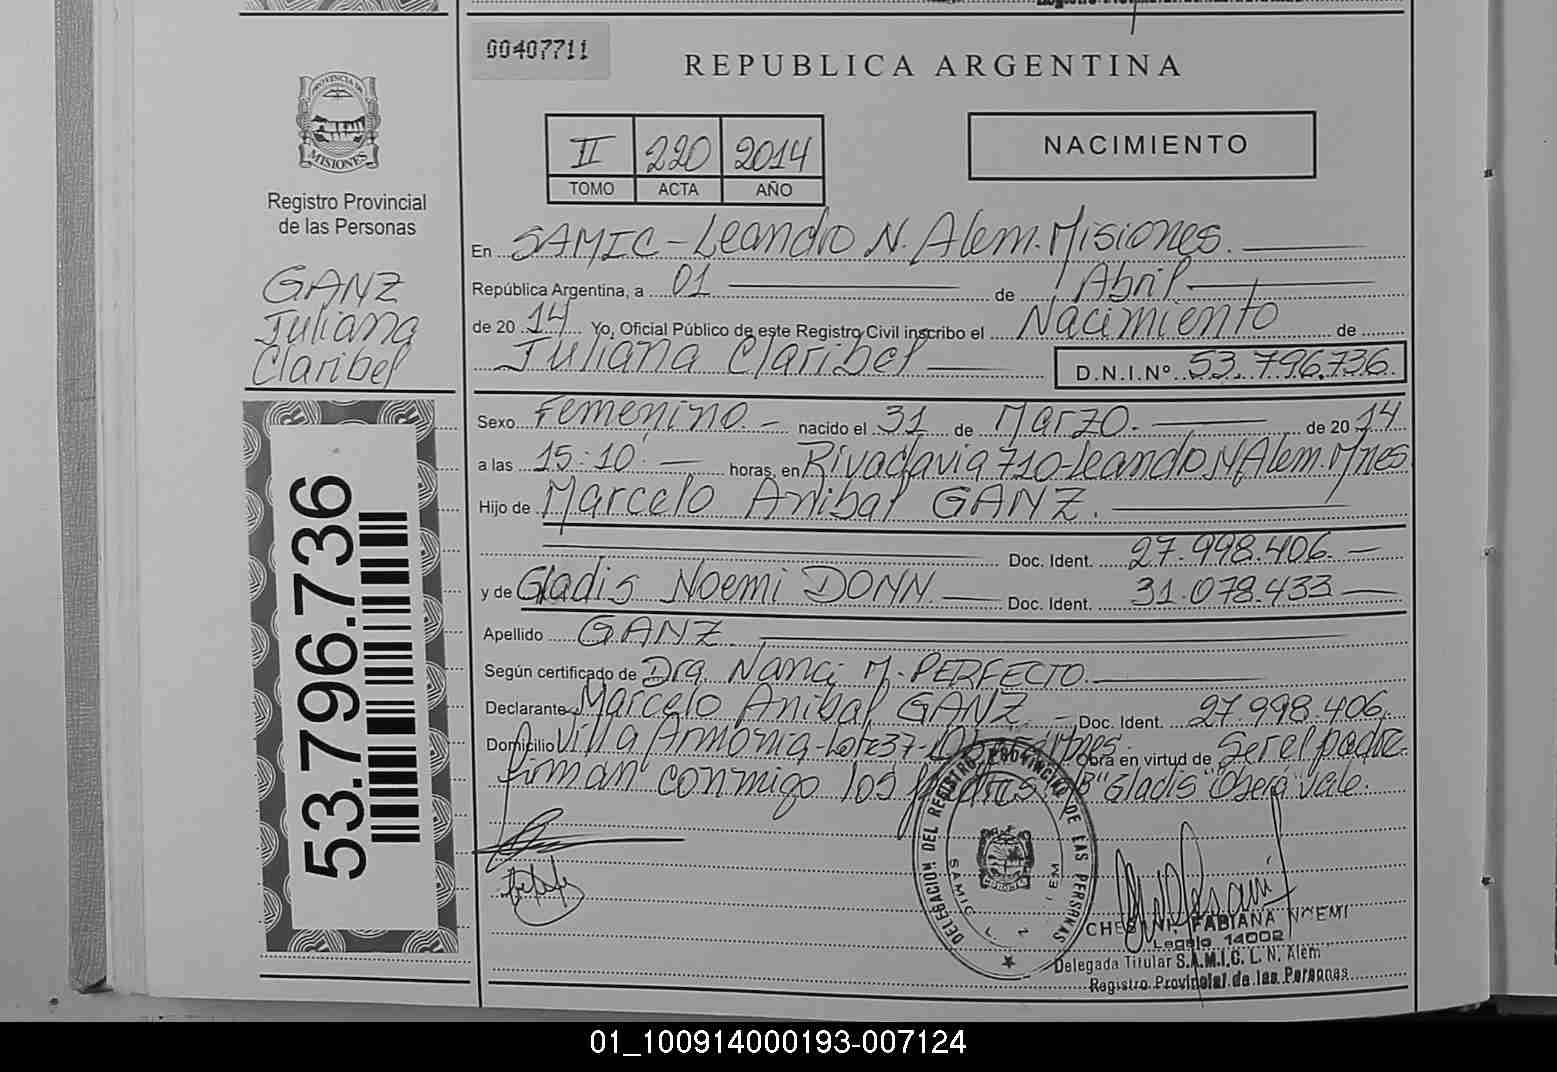 00407711
REPUBLICA ARGENTINA
PROVINCIA DE
MISIONES
Registro Provincial
de las Personas
GANZ
Juliana
Claribel
53.796.736
II 220 2014
TOMO ACTA AÑO
NACIMIENTO
En SAMIC - Leandro N. Alem. Misiones.
República Argentina, a 01 de Abril
de 20 14 Yo, Oficial Público de este Registro Civil inscribo el Nacimiento de
Juliana Claribel D.N.I.Nº 53.796.736.
Sexo Femenino. - nacido el 31 de Marzo. de 20 14
a las 15:10. horas, en Rivadavia 710-Leandro N Alem. Mnes
Hijo de Marcelo Anibal GANZ.
Doc. Ident. 27.998.406. -
y de Gladis Noemi DONN Doc. Ident. 31.078.433
Apellido GANZ
Según certificado de Dra. Nanci M. PERFECTO.
Declarante Marcelo Anibal GANZ. - Doc. Ident. 27.998.406.
Domicilio Villa Armonia-Lote 37- Mnes. Obra en virtud de Ser el padre.
firman conmigo los "Gladis" vale.
DELEGACION DEL REGISTRO PROVINCIAL DE LAS PERSONAS
SAMIC L N
FABIANA NOEMI
Legajo 14002
Delegada Titular S.A.M.I.C. L. N. Alem
Registro Provincial de las Personas
01_100914000193-007124